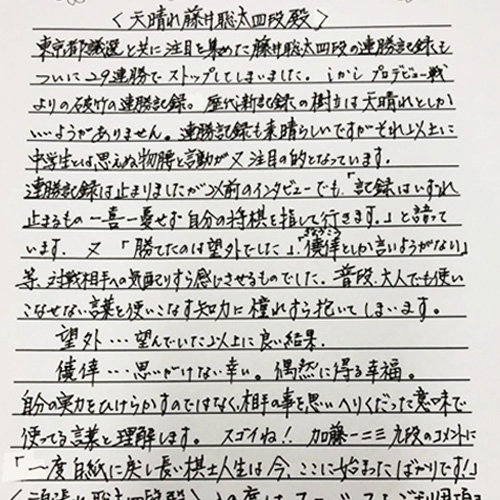 〈天晴れ藤井聡太四段殿〉
東京都議選と共に注目を集めた藤井聡太四段の連勝記録も
ついに29連勝でストップしてしまいました。しかしプロデビュー戦
よりの破竹の連勝記録。歴代新記録の樹立は天晴れとしか
いいようがありません。連勝記録も素晴らしいですがそれ以上に
中学生とは思えぬ物腰と言動が又注目の的となっています。
連勝記録は止まりましたが以前のインタビューでも、「記録はいずれ
止まるもの一喜一憂せず自分の将棋を指して行きます。」と語って
います。又「勝てたのは望外でした」、「僥倖としか言いようがない」
ぎょうこう
等、対戦相手への気配りすら感じさせるものでした。普段、大人でも使い
こなせない言葉を使いこなす知力に憧れすら抱いてしまいます。
望外…望んでいた以上に良い結果.
僥倖…思いがけない幸い。偶然に得る幸福。
自分の実力をひけらかすのではなく、相手の事を思いへりくだった意味で
使ってる言葉と理解します。スゴイね!! 加藤一二三九段のコメントに
「一度白紙に戻し長い棋士人生は今、ここに始まったばかりです!」